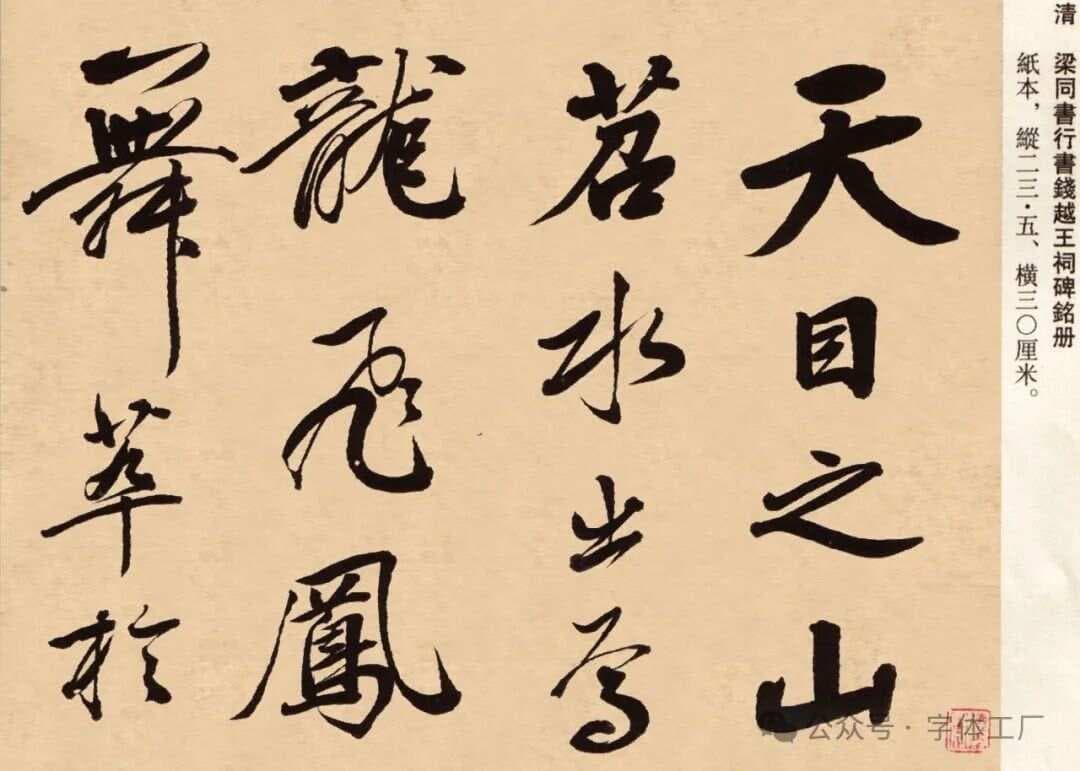 清 梁同書行書錢越王祠碑銘册
紙本，縱二三·五、橫三〇厘米。
天目之山
苕水出焉
龍飛鳳
舞萃於
公众号·字体工厂